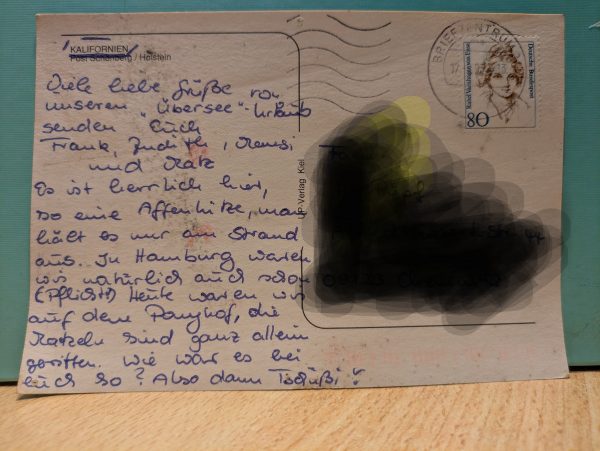 KALIFORNIEN
Post Schönberg / Holstein
Viele liebe Grüße von
unserem „Übersee"-Urlaub
senden Euch
Frank, Judith,
und Katz
Es ist herrlich hier,
so eine Affenhitze, man
hält es nur am Strand
aus. In Hamburg waren
wir natürlich auch schon
(Pflicht!) Heute waren wir
auf dem Ponyhof, die
Katzeln sind ganz allein
geritten. Wie war es bei
Euch so? Also dann Tschüßi!
UP-Verlag Kiel
BRIEFZENTRUM
17
Rahel Varnhagen von Ense
Deutsche Bundespost
80